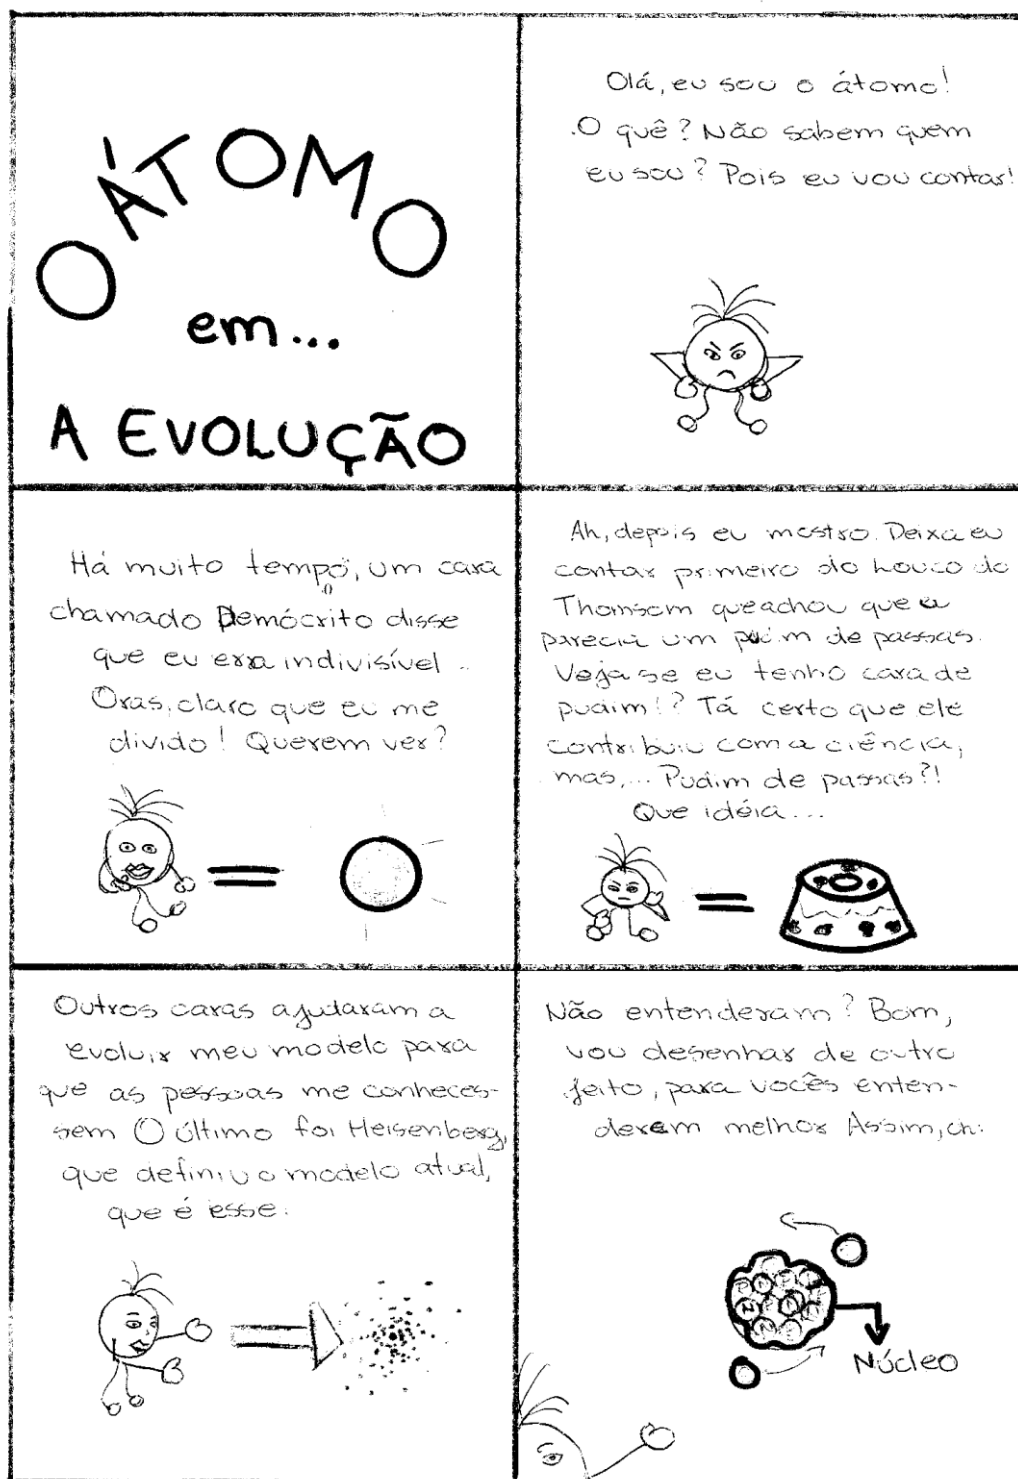 O ÁTOMO
em...
A EVOLUÇÃO
Olá, eu sou o átomo!
O quê? Não sabem quem
eu sou? Pois eu vou contar!
Há muito tempo, um cara
chamado Demócrito disse
que eu era indivisível...
Oras, claro que eu me
divido! Querem ver?
Ah, depois eu mostro. Deixa eu
contar primeiro do Louco do
Thomsom que achou que eu
parecia um pudim de passas.
Veja se eu tenho cara de
pudim!? Tá certo que ele
contribuiu com a ciência,
mas,... Pudim de passas?!
Que idéia...
Outros caras ajudaram a
evoluir meu modelo para
que as pessoas me conheces-
sem O último foi Heisenberg,
que definiu o modelo atual,
que é esse:
Não entenderam? Bom,
vou desenhar de outro
jeito, para vocês enten-
derem melhor Assim, ch:
Núcleo